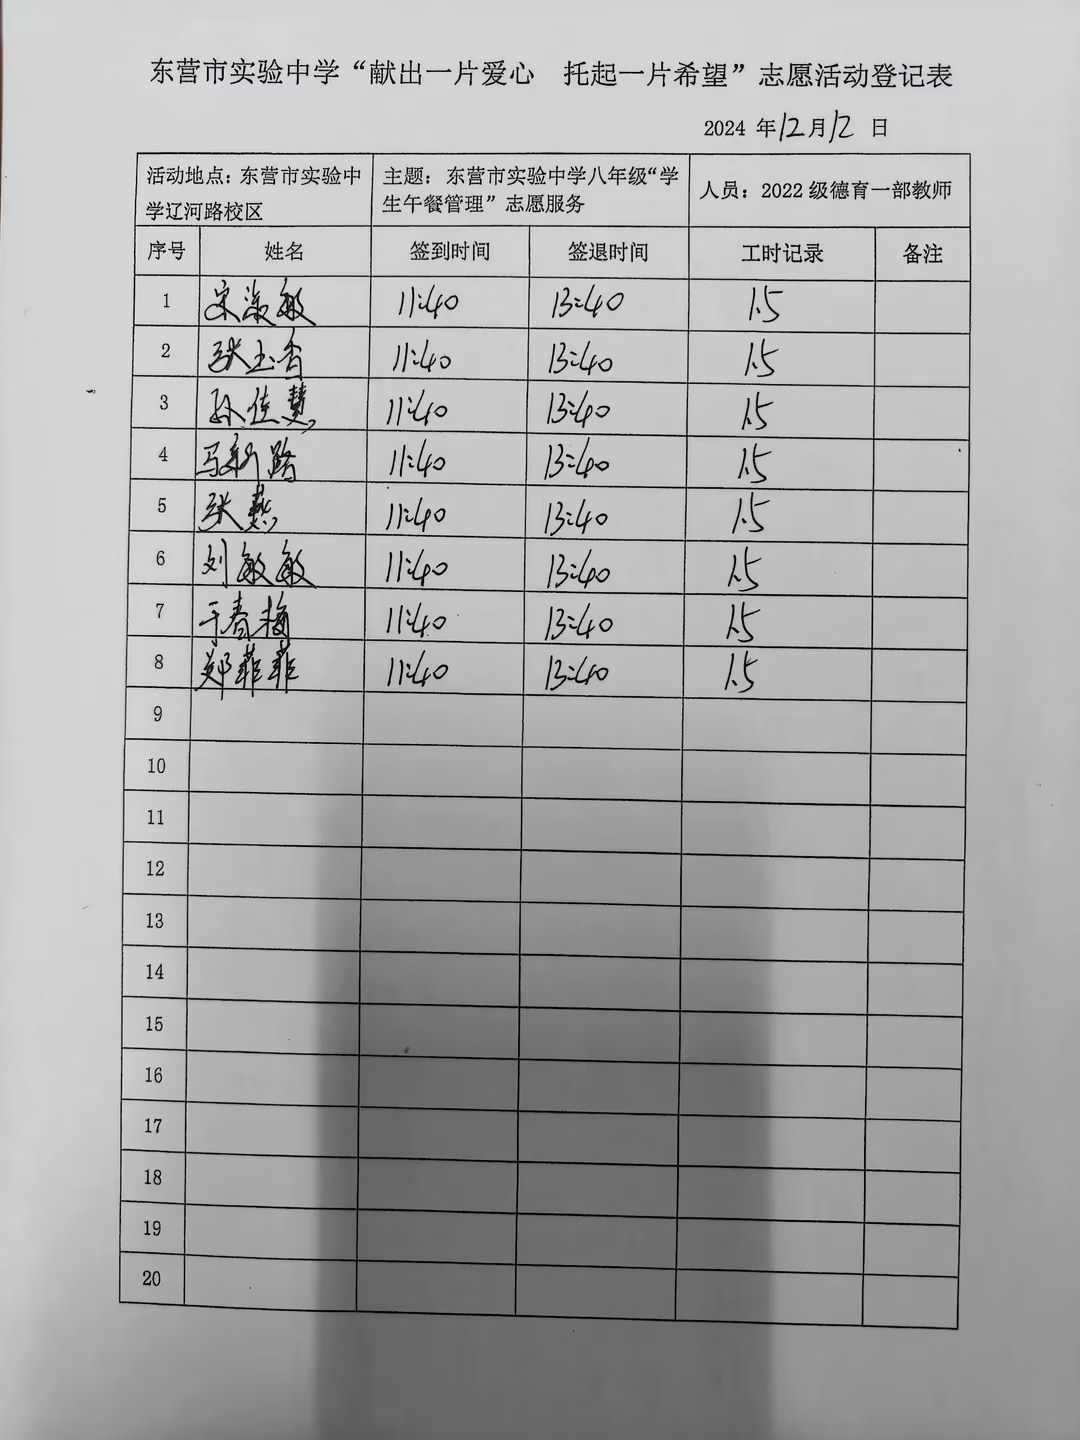 东营市实验中学“献出一片爱心 托起一片希望”志愿活动登记表
2024 年 12 月 12 日
活动地点：东营市实验中学辽河路校区 主题：东营市实验中学八年级“学生午餐管理”志愿服务 人员：2022 级德育一部教师
序号 姓名 签到时间 签退时间 工时记录 备注
1 宋 敏 11:40 13:40 1.5
2 张玉香 11:40 13:40 1.5
3 孙佳慧 11:40 13:40 1.5
4 马新路 11:40 13:40 1.5
5 张燕 11:40 13:40 1.5
6 刘敏敏 11:40 13:40 1.5
7 于春梅 11:40 13:40 1.5
8 郑菲菲 11:40 13:40 1.5
9
10
11
12
13
14
15
16
17
18
19
20